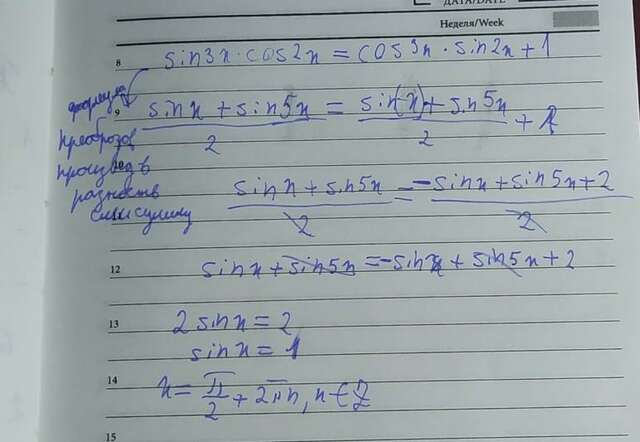 ДАТА/DATE
Неделя/Week
8 sin3x·cos2x = cos3x·sin2x+1
формула
преобразов
произвед в
разность
или сумму
9 (sinx + sin5x)/2 = (sin(x) + sin5x)/2 + 1
10
(sinx + sin5x)/2 = (-sinx + sin5x + 2)/2
12 sinx + sin5x = -sinx + sin5x + 2
13 2sinx = 2
sinx = 1
14 x = π/2 + 2πn, n ∈ Z
15